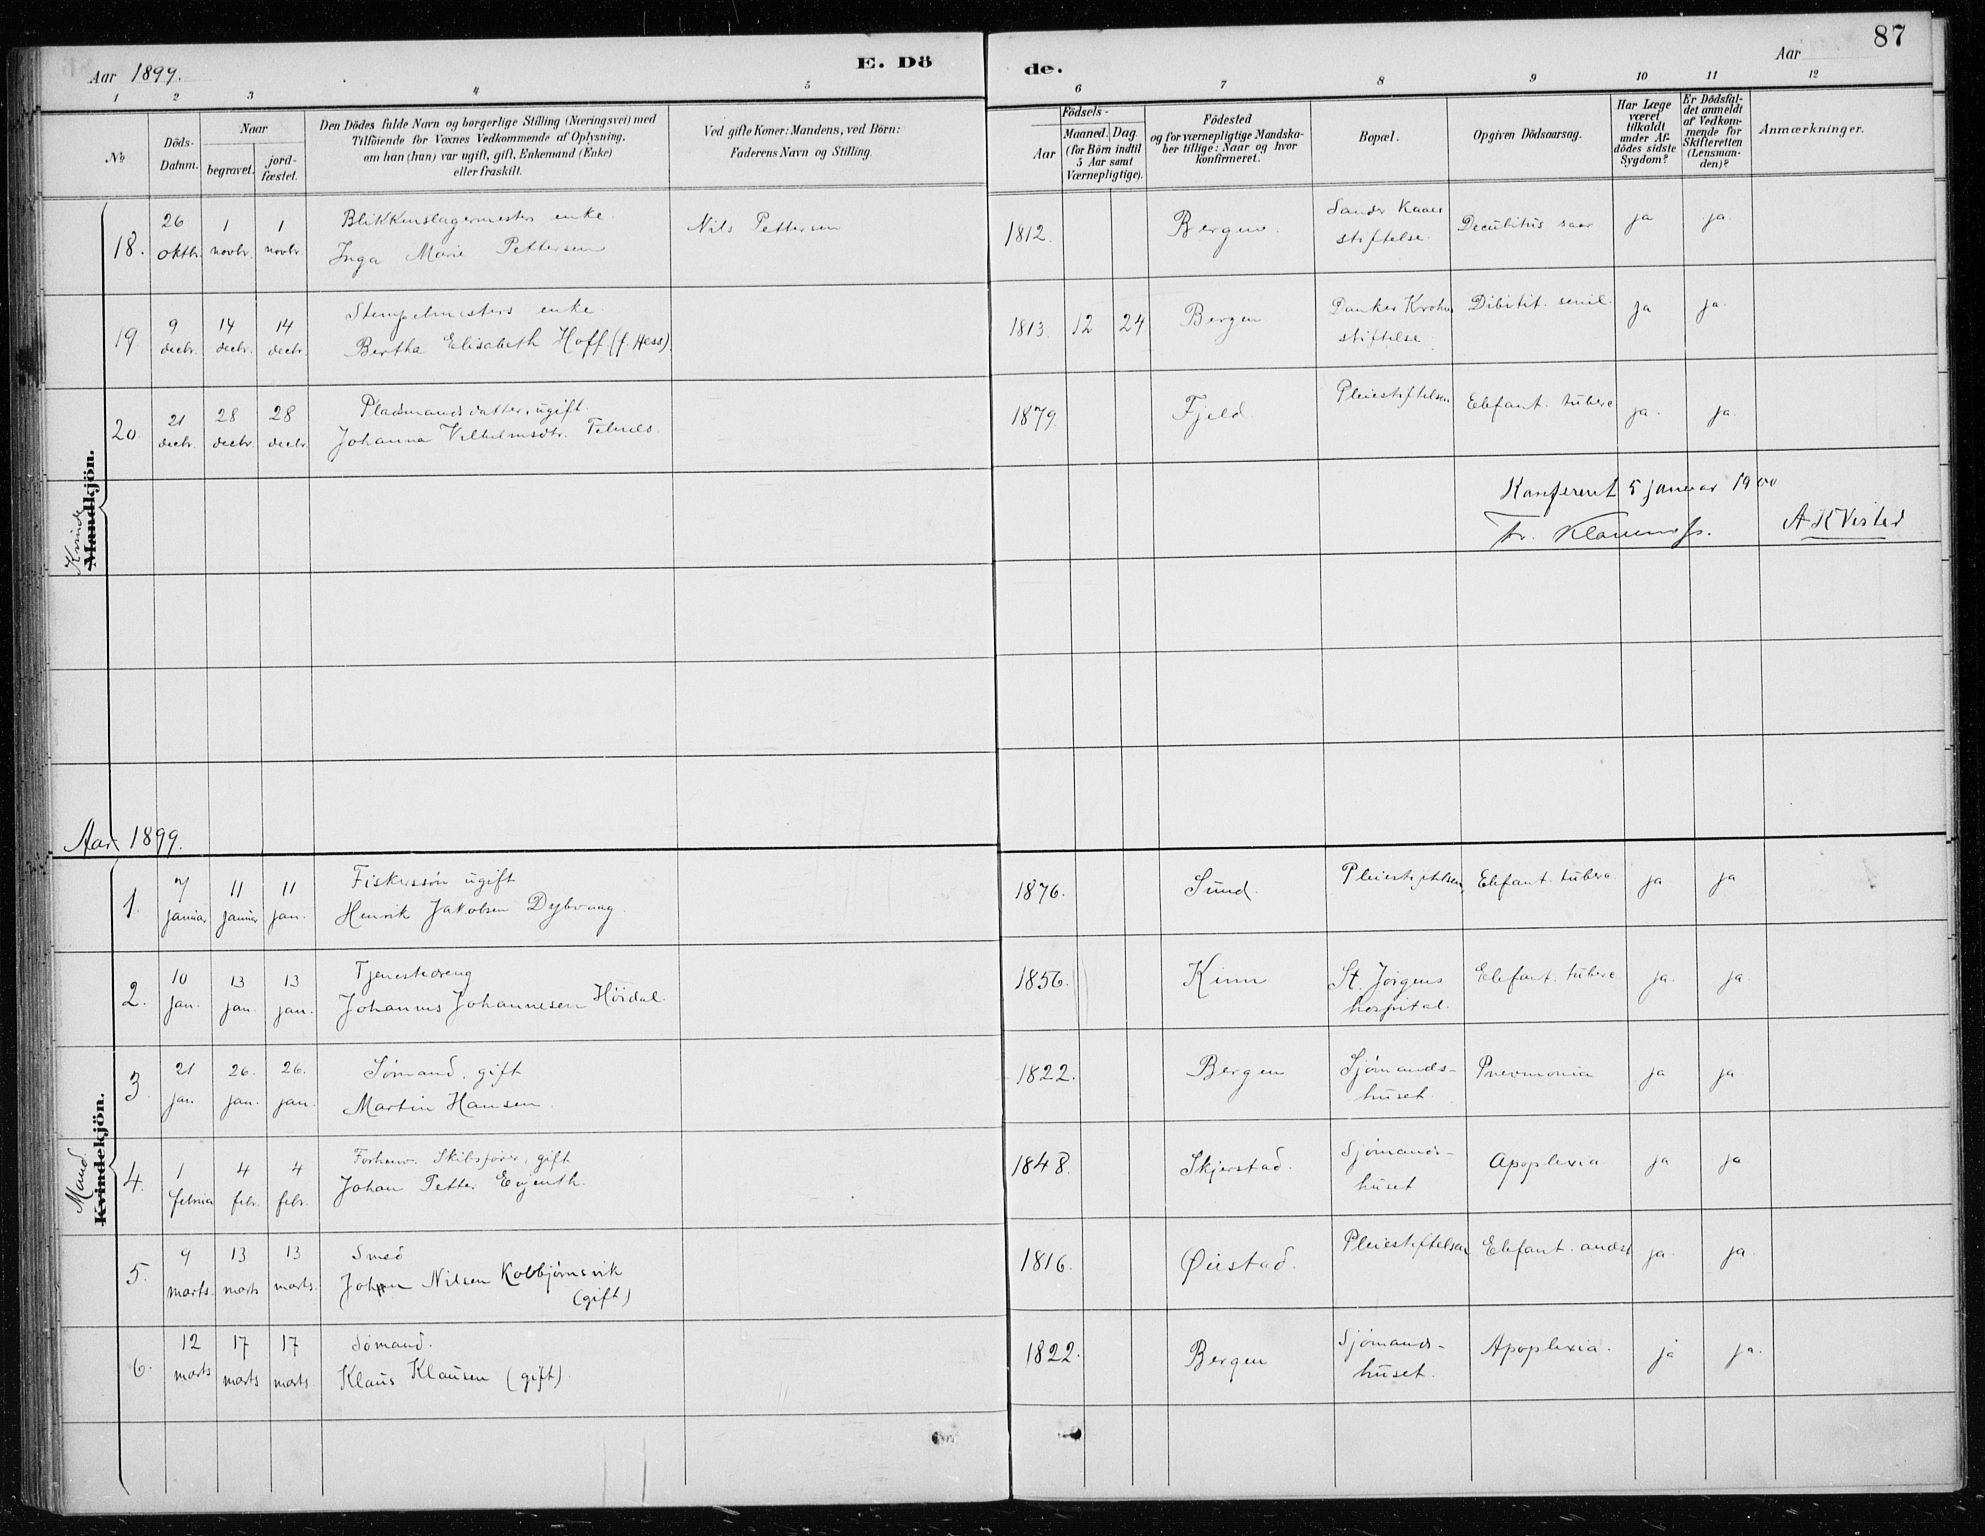 87
Aar 1899.
E. Dö
de.
Aar
1 2 3 4 5 6 7 8 9 10 11 12
No
Döds-Datum.
Naar
begravet.
jord-fæstet.
Den Dödes fulde Navn og borgerlige Stilling (Næringsvei) med
Tilföiende for Voxnes Vedkommende af Oplysning,
om han (hun) var ugift, gift, Enkemand (Enke)
eller fraskilt.
Ved gifte Koner: Mandens, ved Börn:
Faderens Navn og Stilling.
Födsels-
Aar
Maaned. Dag.
(for Börn indtil
5 Aar samt
Værnepligtige).
Födested
og for værnepligtige Mandska-
ber tillige: Naar og hvor
konfirmeret.
Bopæl.
Opgiven Dödsaarsag.
Har Læge
været
tilkaldt
under Af-
dödes sidste
Sygdom?
Er Dödsfal-
det anmeldt
af Vedkom-
mende for
Skifteretten
(Lensman-
den)?
Anmærkninger.
Kvinde
Mandkjön.
18. 26 oktbr. 1 novbr. 1 novbr. Blikkenslagermesters enke
Inga Marie Pettersen Nils Pettersen 1812. Bergen. Sander Kaaes stiftelse. Decubitus saar ja ja.
19. 9 decbr. 14 decbr. 14 decbr. Stempelmesters enke.
Bertha Elisabeth Hoff (f. Hess). 1813. 12 24 Bergen Danker Krohns stiftelse. Dibitit. senil. ja ja.
20. 21 decbr. 28 decbr. 28 decbr. Pladsmandsdatter, ugift.
Johanna Vilhelmsdtr. 1879. Fjeld Pleiestiftelsen Elefant. tuberc ja. ja.
Konfereret 5 januar 1900
A K Visted
Aar 1899.
Mand
Kvindekjön.
1. 7 januar 11 januar 11 jan. Fiskerssön ugift
Henrik Jakobsen Dybvaag. 1876. Sund. Pleiestiftelsen, Elefant. tuberc. ja ja
2. 10 jan. 13 jan. 13 jan. Tjenestedreng
Johannes Johannesen Höidal. 1856. Kinn St. Jörgens hospital. Elefant. tuberc ja. ja.
3. 21 jan. 26. jan. 26. jan. Sömand. gift
Martin Hansen. 1822. Bergen Sjömands-huset. Pnevmonia ja ja
4. 1 februa 4 febr. 4 febr. Forhenv. Skibsförer, gift
Johan Petter Evjenth. 1848. Skjerstad. Sjömands-huset Apoplexia ja ja
5. 9 marts. 13 marts 13 marts. Smed
Johan Nilsen Kolbjörnsvik
(gift) 1816. Öiestad. Pleiestiftelsen Elefant. andst ja. ja
6. 12 marts 17 marts 17 marts. Sömand.
Klaus Klausen (gift). 1822. Bergen Sjömands-huset. Apoplexia. ja ja.